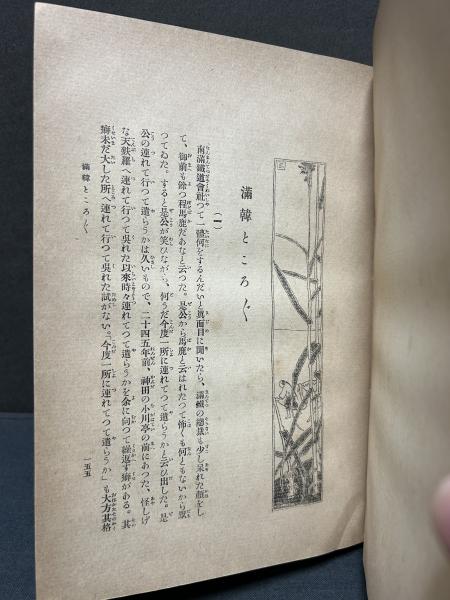 滿韓ところ〲
(一)
南滿鐵道會社つて一體何をするんだいと眞面目に聞いたら、滿鐵の總裁も少し呆れた顔をし
て、御前も餘つ程馬鹿だあなと云つた。是公から馬鹿と云はれたつて怖くも何ともないから默
つてゐた。すると是公が笑ひながら、何うだ今度一所に連れてつて遣らうかと云ひ出した。是
公の連れて行つて遣らうかは久いもので、二十四五年前、神田の小川亭の前にあつた、怪しげ
な天麩羅へ連れて行つて呉れた以來時々連れてつて遣らうかを余に向つて繰返す癖がある。其
癖未だ大した所へ連れて行つて呉れた試がない。「今度一所に連れてつて遣らうか」も大方其格
滿韓ところ〲
一五五